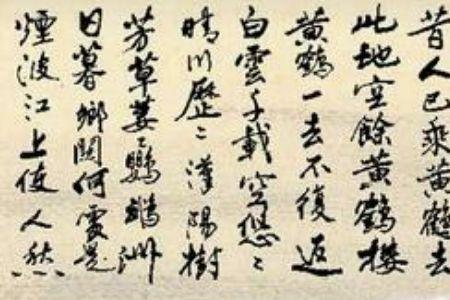 昔人已乘黃鶴去
此地空餘黃鶴樓
黃鶴一去不復返
白雲千載空悠〻
晴川歷〻漢陽樹
芳草萋〻鸚鵡洲
日暮鄉關何處是
煙波江上使人愁